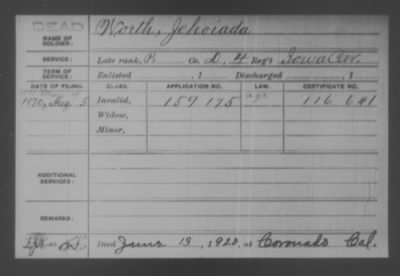 DEAD
NAME OF SOLDIER: Worth, Jehoiada
SERVICE: Late rank, P. Co. D, 4 Reg't Iowa Cav.
TERM OF SERVICE: Enlisted , 1 Discharged , 1
DATE OF FILING. CLASS. APPLICATION NO. LAW. CERTIFICATE NO.
1870, Aug 5 Invalid, 159 175 age 116 641
Widow,
Minor,
ADDITIONAL SERVICES:
REMARKS:
Died June 13, 1920, at Coronado Cal.